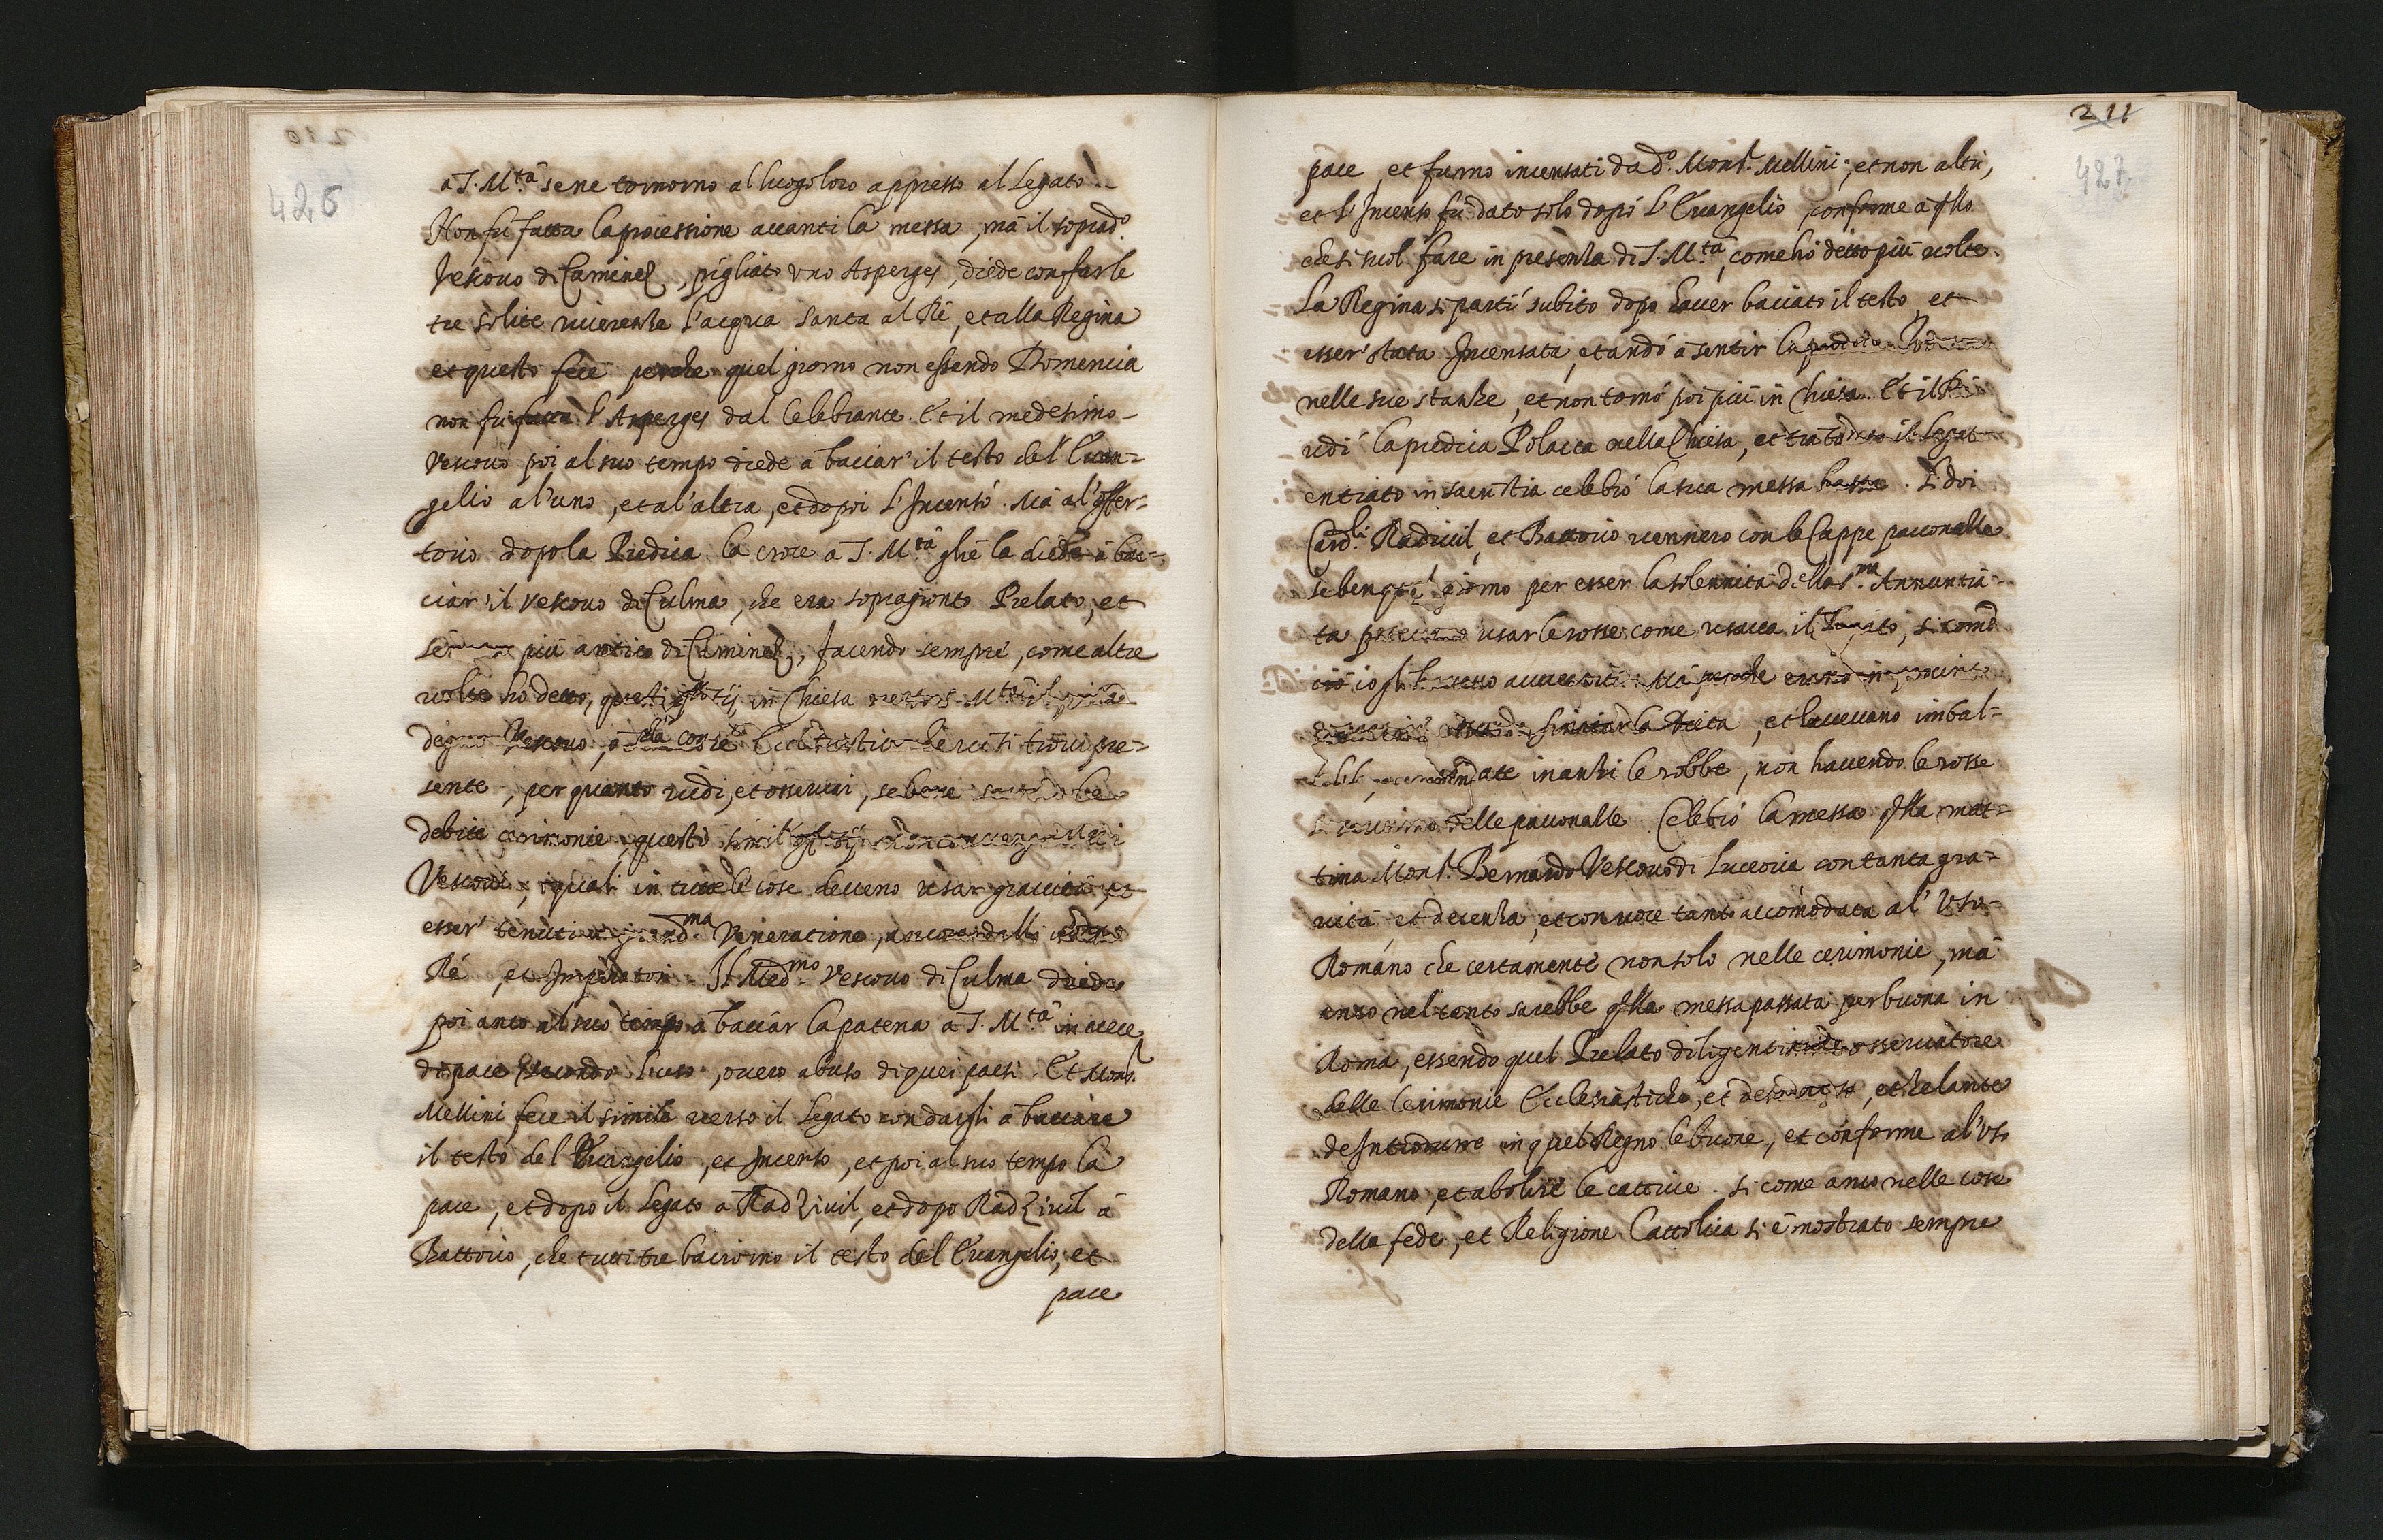 426
à S. M.tà se ne tornorno al luogo loro appresso al Legato.
Non fu fatta la processione avanti la messa, mà il soprad.o
Vescovo di Caminez, pigliato uno Asperges, diede con farle
tre solite riverenze l'acqua santa al Rè, et alla Regina
et questo fece perche quel giorno non essendo Domenica
non fu fatta l'Asperges dal Celebrante. Et il medesimo
Vescovo poi al suo tempo diede à baciar' il testo del Evan=
gelio al'uno, et al'altra, et dopoi l'Incensò. Mà al'offer=
torio dopo la Predica la croce à S. M.tà ghe la diede à bac=
ciar' il Vescovo di Culma, che era sopragionto Prelato, et
più antico di Caminez, facendo sempre, come altre
volte hò detto, questi offitij in Chiesa verso S. M.tà il più
degno Vescovo, ò che vi si trovi pre=
sente, per quanto viddi, et osservai, se bene
debite cerimonie, questi simil' offitij
Vescovi, i quali in tutte le cose devono usar gravità, et
esser' tenuti in grand.ma Veneratione, ancora dalli
Rè, et Imperatori. Il Med.mo Vescovo di Culma diede
poi anco al suo tempo à baciar la patena à S. M.tà in vece
di pace secondo l'uso, overo abuso di quei paesi. Et Mons.r
Mellini fece il simile verso il Legato con dargli à bacciare
il testo del Evangelio, et Incenso, et poi al suo tempo la
pace, et dopo il Legato à Radzivil, et dopo Radzivil à
Battorio, che tutti tre baciorno il testo del Evangelio, et
pace
211
427
pace, et furno incensati da d.o Mons.r Mellini, et non altri,
et l'Incenso fu dato solo dopò l'Evangelio, conforme à q̃llo
che si suol fare in presenza di S. M.tà, come hò detto più volte.
La Regina si partì subito dopo haver baciato il testo, et
esser' stata Incensata, et andò à sentir la predica
nelle sue stanze, et non tornò poi più in Chiesa. Et il Rè
udì la predica Polacca nella Chiesa, et tra tanto il Legato
entrato in sacristia celebrò la sua messa bassa. Li doi
Card.li Radzivil, et Battorio vennero con le Cappe pavonazze
se ben quel giorno per esser la solennità della S.ma Annuntia=
ta usar le rosse come usava il Legato, si come
ciò io
finir la Dieta, et havevano imbal=
ate inanzi le robbe, non havendo le rosse
delle pavonazze. Celebrò la messa q̃lla mat=
tina Mons.r Bernardo Vescovo di Luceoria con tanta gra=
vità, et decenza, et con voce tanto accomodata al' Uso
Romano che certamente non solo nelle cerimonie, mà
anco nel canto sarebbe q̃lla messa passata per buona in
Roma, essendo quel Prelato diligentissimo osservatore
delle Cerimonie Ecclesiastiche, et desideroso, et zelante
de Introdurre in quel Regno le buone, et conforme al'uso
Romano, et abolire le cattive. si come anco nelle cose
della fede, et Religione Cattolica si è mostrato sempre